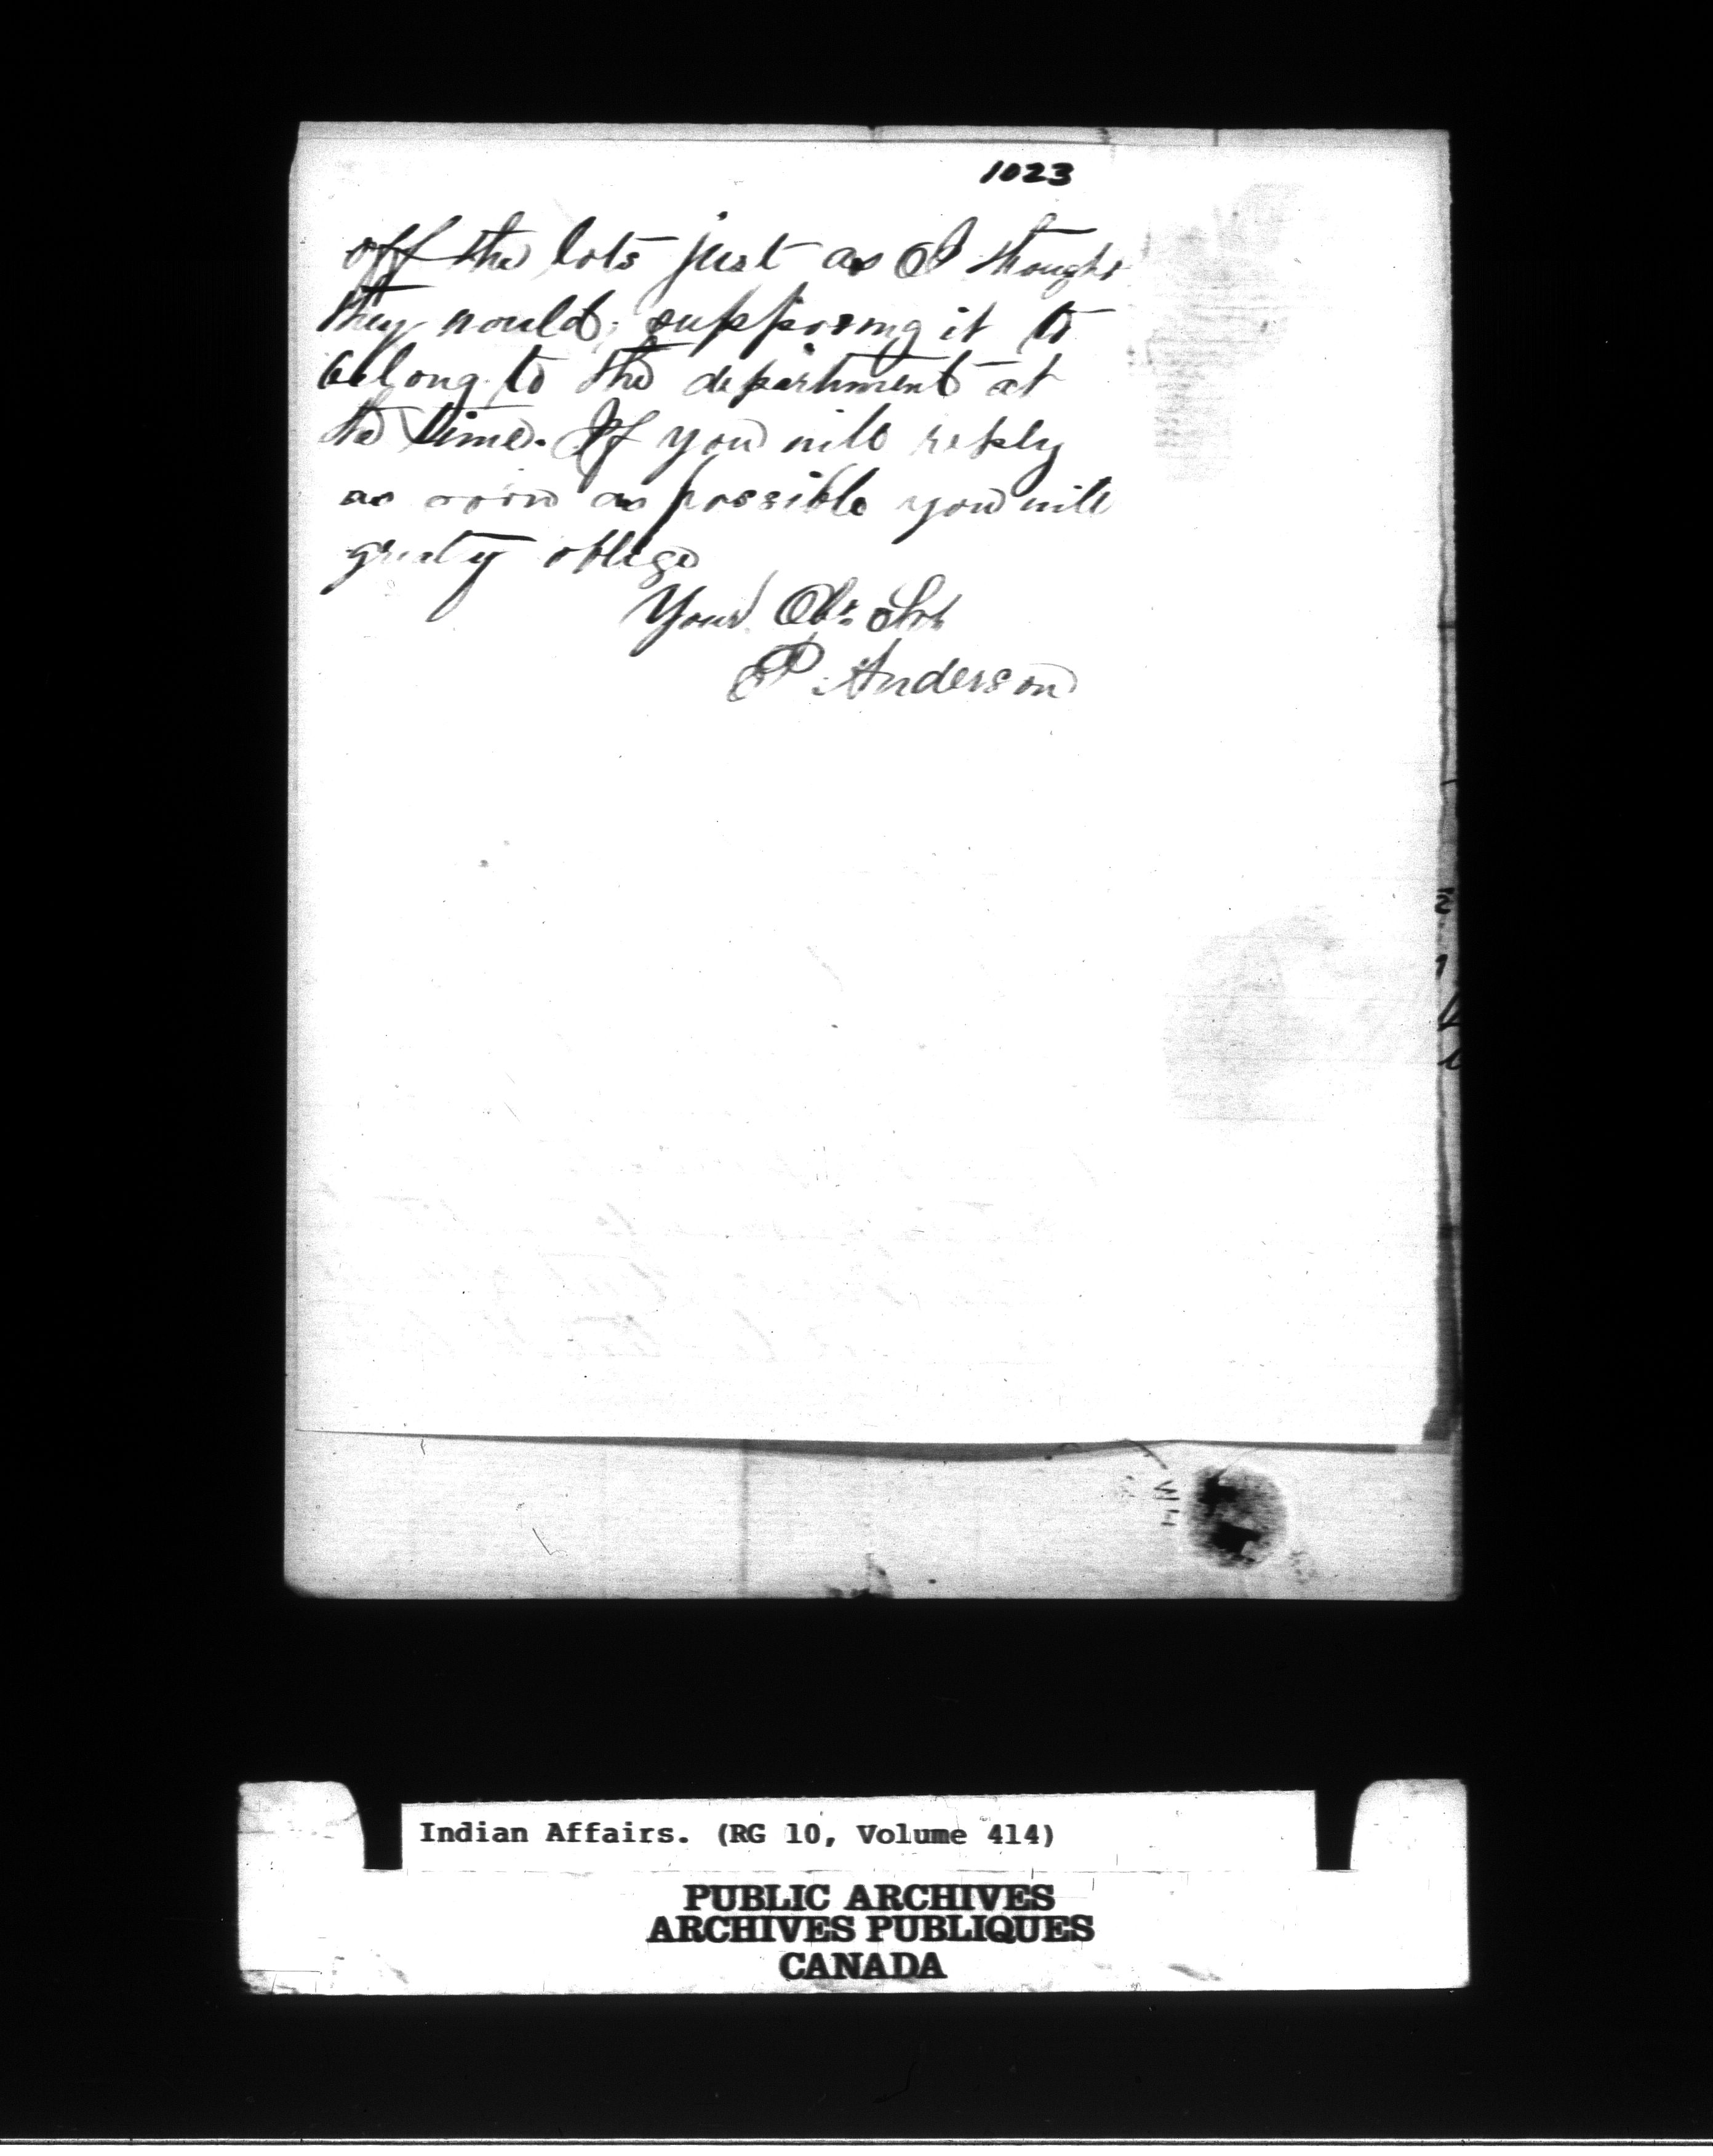 1023
off the lots just as I thought
they would, supposing it to
belong to the department at
the time. If you will reply
as soon as possible you will
greatly oblige
Your Obt. Svt
P. Anderson
Indian Affairs. (RG 10, Volume 414)
PUBLIC ARCHIVES
ARCHIVES PUBLIQUES
CANADA